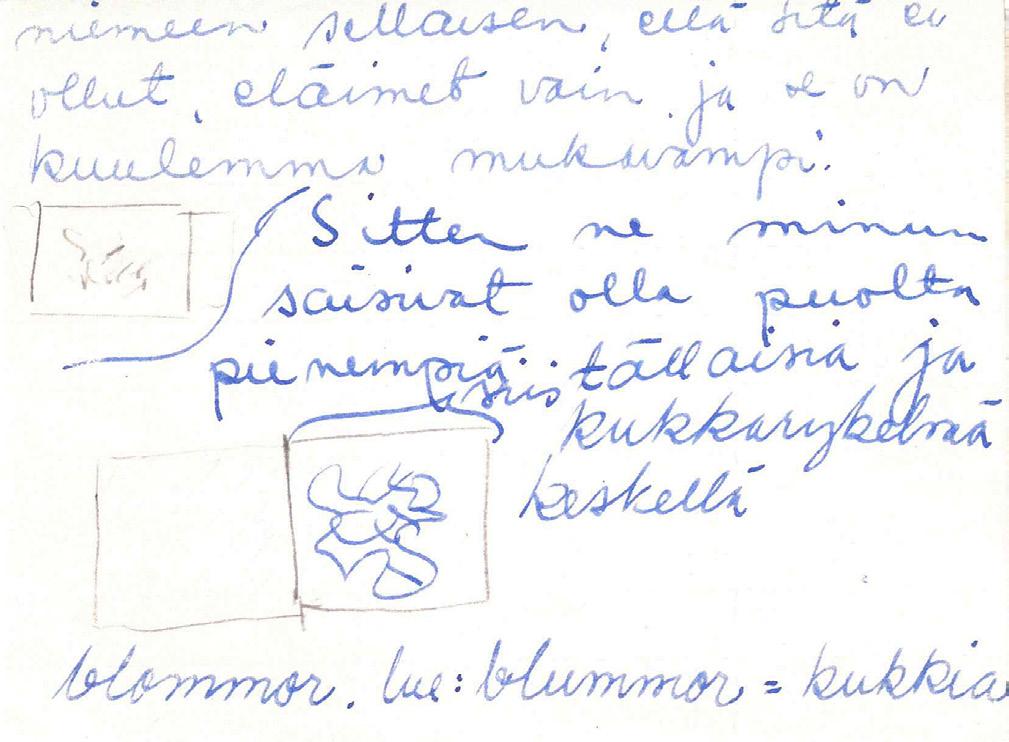 niemeen sellaisen, ellä sitä ei
ollut, eläimet vain ja se on
kuulemma mukavampi.
Sitten ne minun
säisivät olla puolta
pienempiä siis tällaisia ja
kukkarykelmä
keskellä
blommor. lue: blummor = kukkia